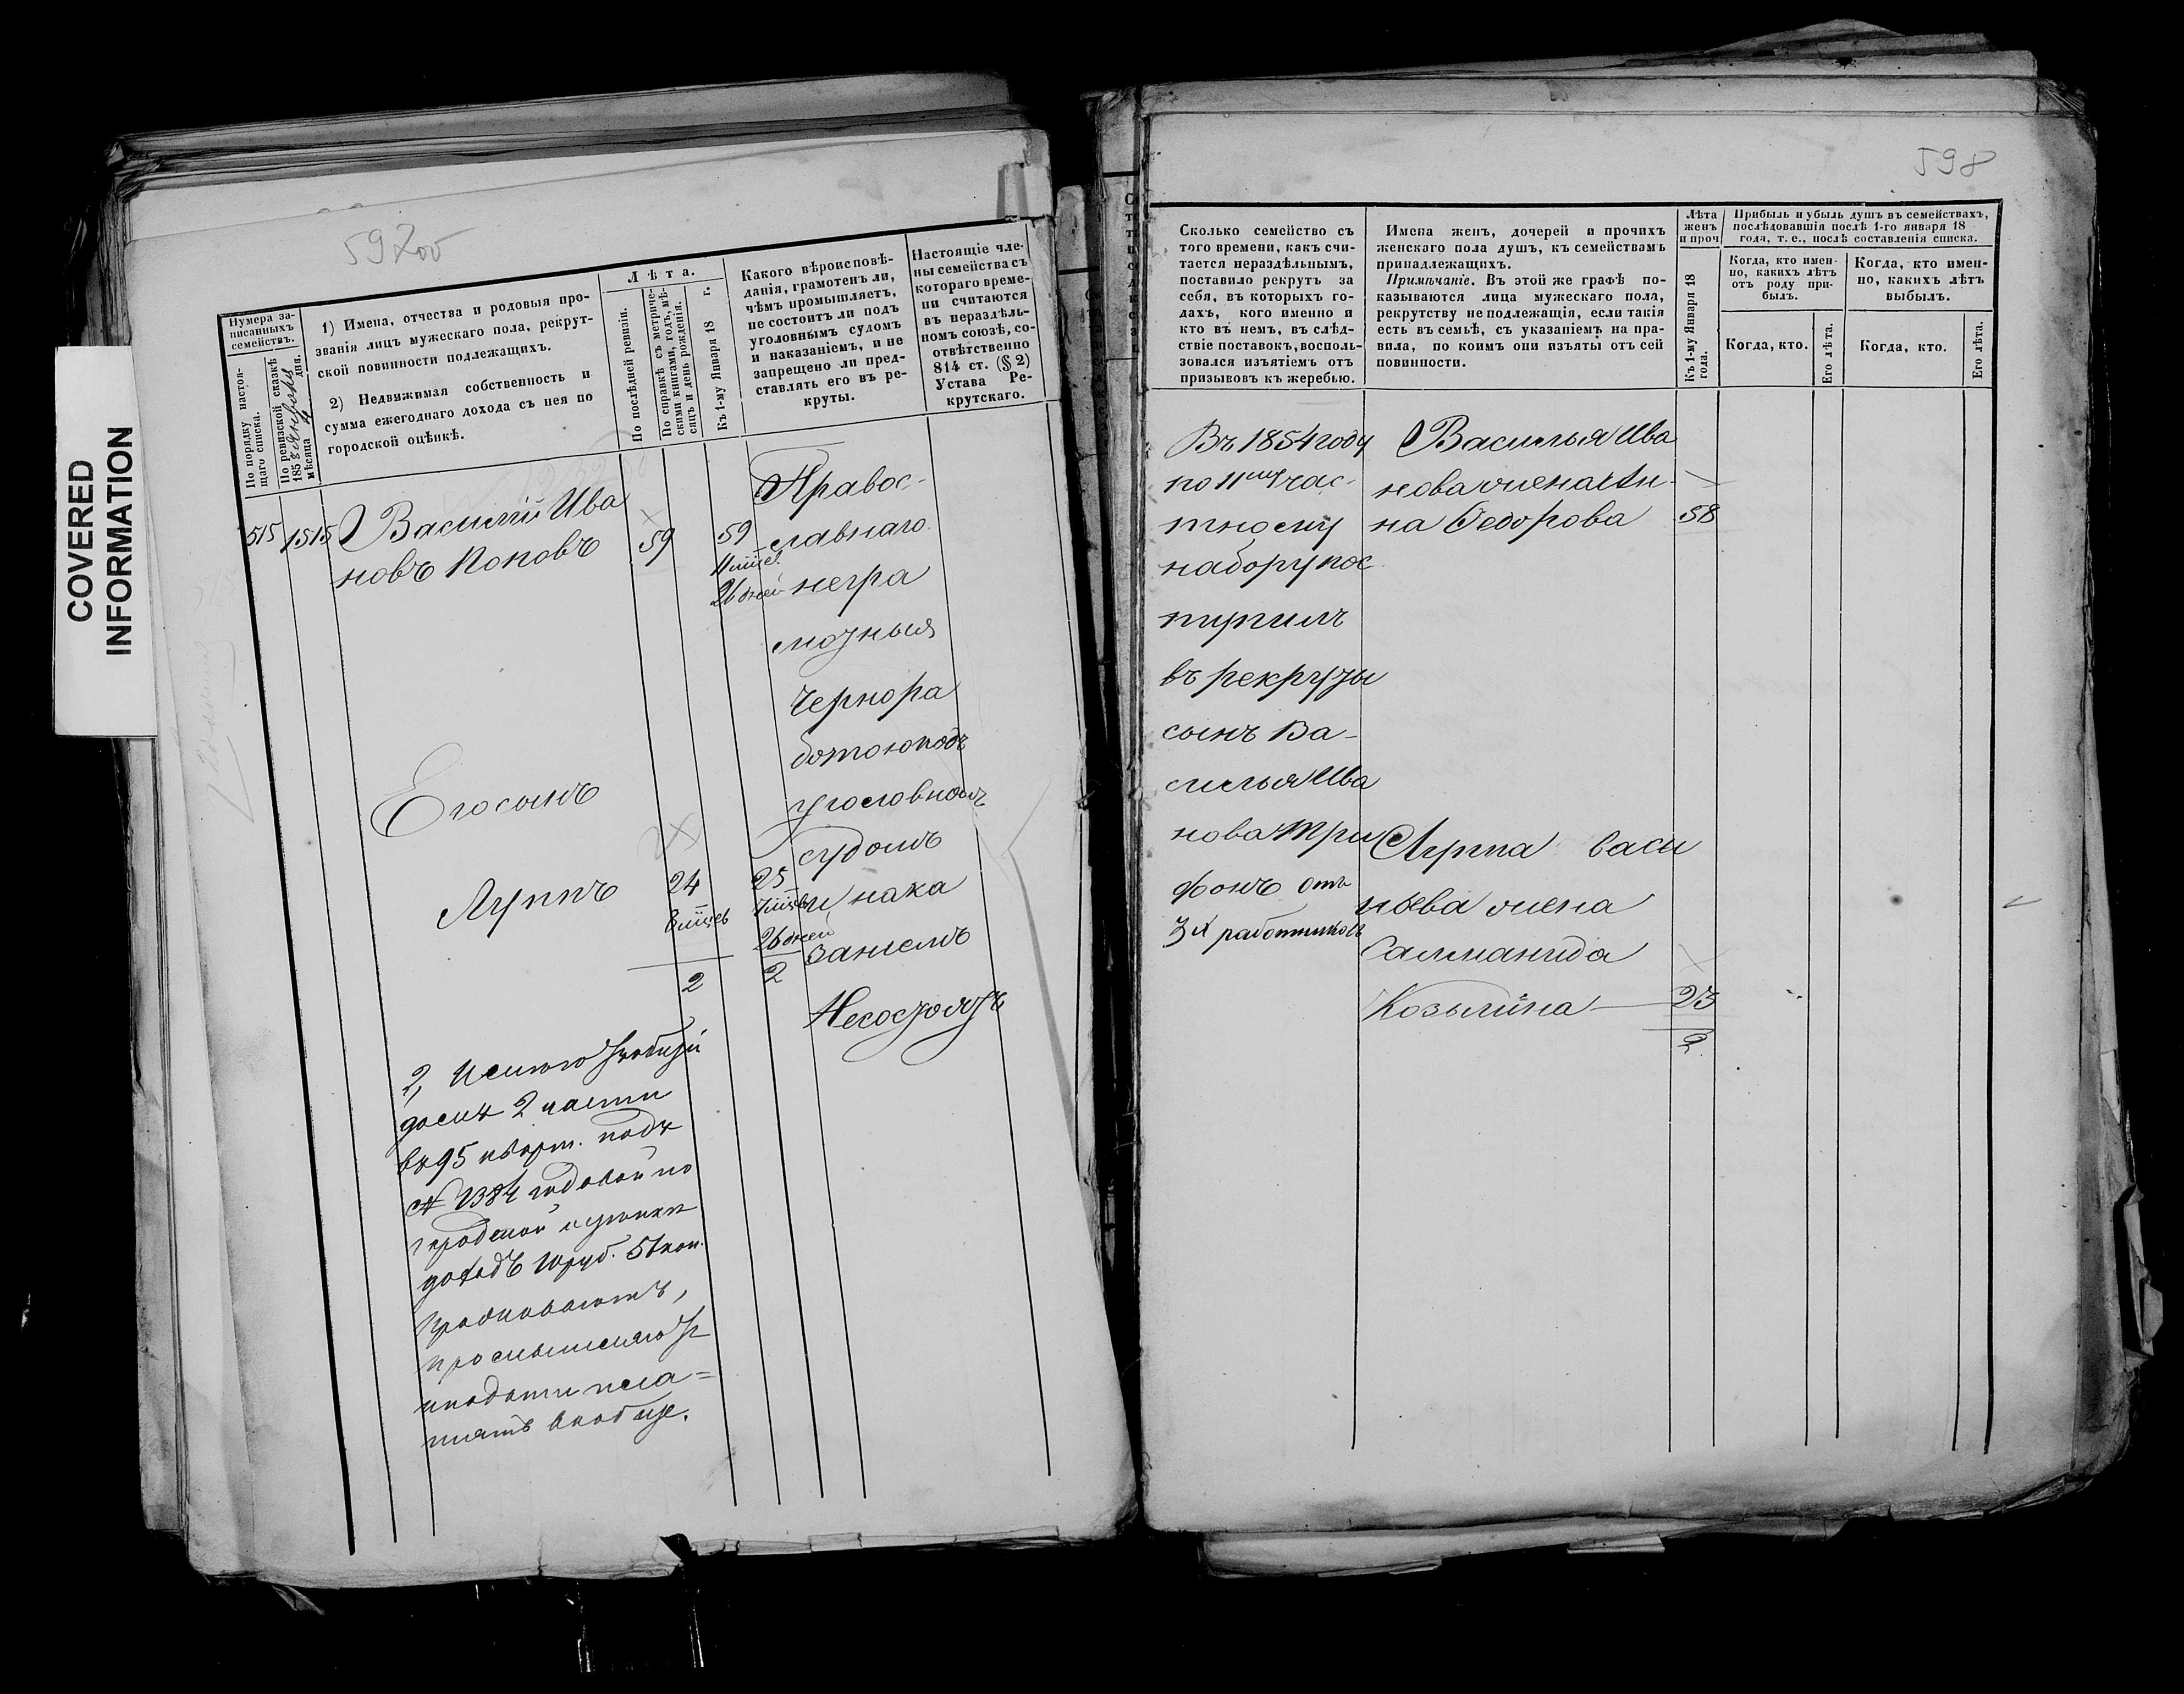 COVERED
INFORMATION
598
Нумера за-
писанныхъ
семействъ.
По порядку настоя-
щаго списка.
По ревизской сказкѣ
185
мѣсяца дня.
1) Имена, отчества и родовыя про-
званія лицъ мужескаго пола, рекрут-
ской повинности подлежащихъ.
2) Недвижимая собственность и
сумма ежегоднаго дохода съ нея по
городской оцѣнкѣ.
Лѣта.
По послѣдней ревизіи.
По справкѣ съ метриче-
скими книгами, годъ, мѣ-
сяцъ и день рожденія.
Къ 1-му Января 18 г.
Какого вѣроисповѣ-
данія, грамотенъ ли,
чѣмъ промышляетъ,
не состоитъ ли подъ
уголовнымъ судомъ
и наказаніемъ, и не
запрещено ли пред-
ставлять его въ ре-
круты.
Настоящіе чле-
ны семейства съ
котораго време-
ни считаются
въ нераздѣль-
номъ союзѣ, со-
отвѣтственно
814 ст. (§ 2)
Устава Ре-
крутскаго.
515
1515
Василій Ива
новъ Поповъ
59
59
11 мѣсе.
26 дней
Правос-
лавнаго
негра
мотныя
чернора
ботою подъ
уголовномъ
судомъ
и нака
заніемъ
Несостоятъ
Его сынъ
Луппъ
24
8 мѣсеъ
25
26 дней
2
2
2,
доми 2 части
въ 95 кварт. подъ
годовой по
городской оценки
доходъ 10 руб. коп.
промышляютъ
и подати пла=
тятъ вообще.
Сколько семейство съ
того времени, какъ счи-
тается нераздѣльнымъ,
поставило рекрутъ за
себя, въ которыхъ го-
дахъ, кого именно и
кто въ немъ, въ слѣд-
ствіе поставокъ, восполь-
зовался изъятіемъ отъ
призывовъ къ жеребью.
Имена женъ, дочерей и прочихъ
женскаго пола душъ, къ семействамъ
принадлежащихъ.
Примѣчаніе. Въ этой же графѣ по-
казываются лица мужескаго пола,
рекрутству не подлежащія, если такія
есть въ семьѣ, съ указаніемъ на пра-
вила, по коимъ они изъяты отъ сей
повинности.
Лѣта
женъ
и проч
Къ 1-му Января 18
года.
Прибыль и убыль душъ въ семействахъ,
послѣдовавшія послѣ 1-го января 18
года, т. е., послѣ составленія списка.
Когда, кто имен-
но, какихъ лѣтъ
отъ роду при-
былъ.
Когда, кто имен-
но, какихъ лѣтъ
выбылъ.
Когда, кто.
Его лѣта.
Когда, кто.
Его лѣта.
Въ 1854 году
по 11му час-
тному
набору пос
тупилъ
въ рекруты
сынъ Ва-
силья Ива
нова Три
фонъ отъ
3х работниковъ
Василья Ива
нова жена Ан-
на Федорова
58
Луппа Васи
льева жена
Саломанида
Козьмина
23
2.